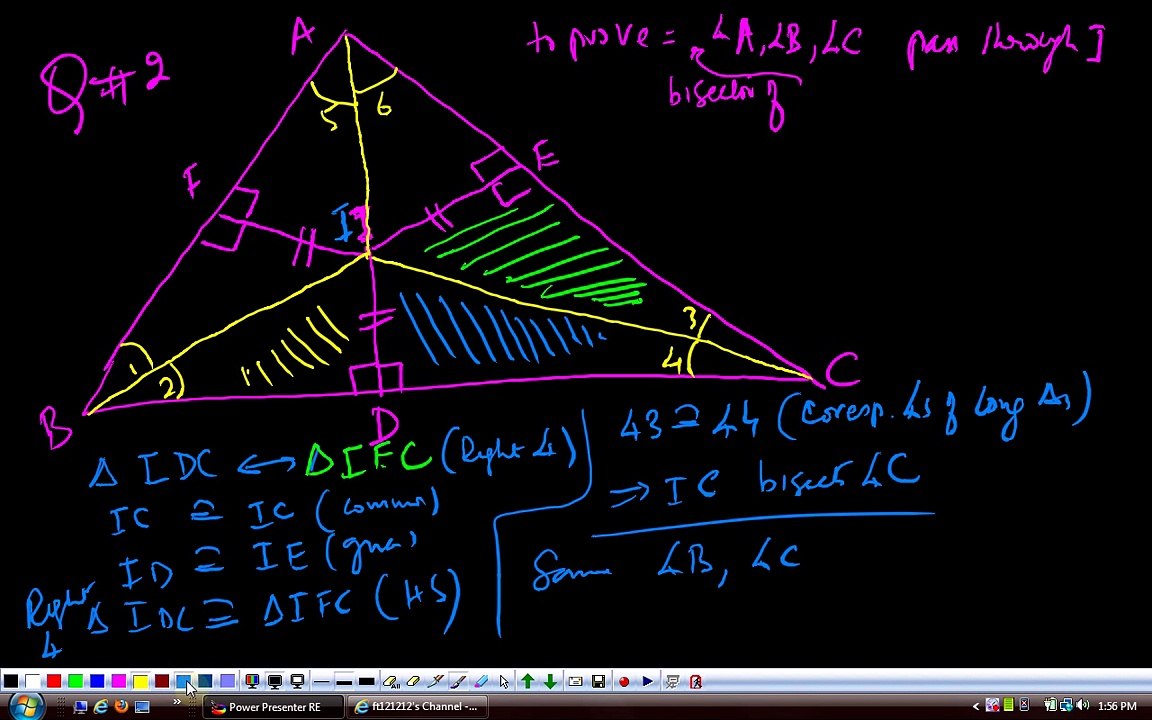 Q # 2
to prove = ∠A, ∠B, ∠C pass through I
bisector of
A
5 6
F
E
I
1
2
3
4
B
D
C
Δ IDC ↔ Δ IEC (Right ∠)
IC ≅ IC (common)
ID ≅ IE (given)
Right ∠ Δ IDC ≅ Δ IEC (HS)
∠3 ≅ ∠4 (Corresp. ∠s of Cong Δs)
⇒ IC bisect ∠C
Same ∠B, ∠C
Power Presenter RE
ft121212's Channel -...
1:56 PM